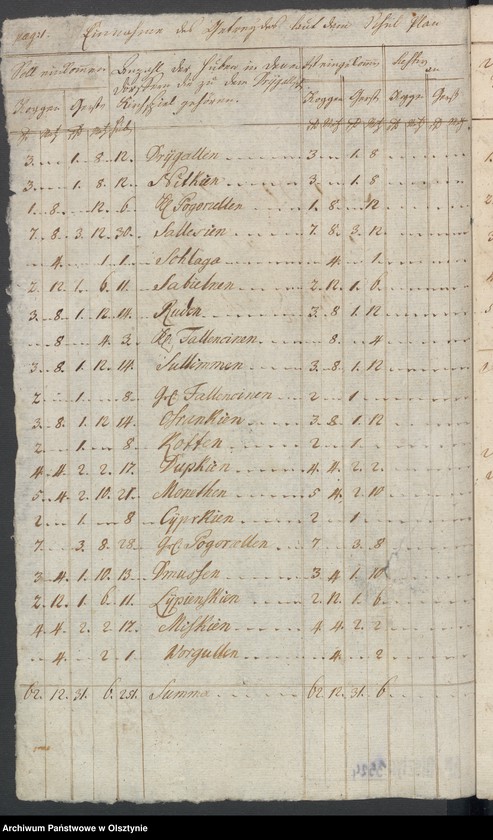 pag: 1. Einnahme des Getreydes laut dem Schul Plan
Soll einkommen Anzahl der Huben in denen Ist eingekommen Restiren
Dörffern die zu dem Drÿgallschen
Roggen Gerste Kirchspiel gehören. Roggen Gerste Roggen Gerste
3. 1. 8. 12. Drÿgallen 3 1 8
3. 1. 8. 12. Nitkien 3 1. 8
1. 8. 12. 6. Kl. Pogorzellen 1. 8. 12
7. 8. 3. 12. 30. Sallesien 7 8 3. 12
4. 1 1. Schlaga 4. 1
2. 12 1. 6. 11. Sabielnen 2. 12. 1. 6
3. 8. 1. 12. 14. Ruden 3. 8. 1. 12
8. 4. 3. Kl. Fallencinen. 8. 4
3. 8. 1. 12. 14. Sullimmen 3. 8. 1. 12
2 1. 8. Gr. Fallencinen 2 1
3. 8. 1. 12 14. Osrankien 3. 8. 1. 12
2 1. 8. Kotten 2. 1
4 4. 2. 2. 17. Dupken 4. 4. 2. 2.
5. 4. 2. 10. 21. Monethen 5 4. 2. 10
2 1. 8 Cÿprkien 2 1
7. 3. 8. 28. Gr. Pogorzellen 7 3. 8
3 4. 1. 10. 13. Dmussen 3. 4 1. 10
2. 12. 1. 6. 11. Lÿpienskien 2. 12. 1. 6
4. 4. 2. 2. 17. Miskien 4. 4. 2. 2
4. 2 1. Worgullen 4. 2
62. 12. 31. 6. 251. Summa 62 12. 31. 6.
Archiwum Państwowe w Olsztynie